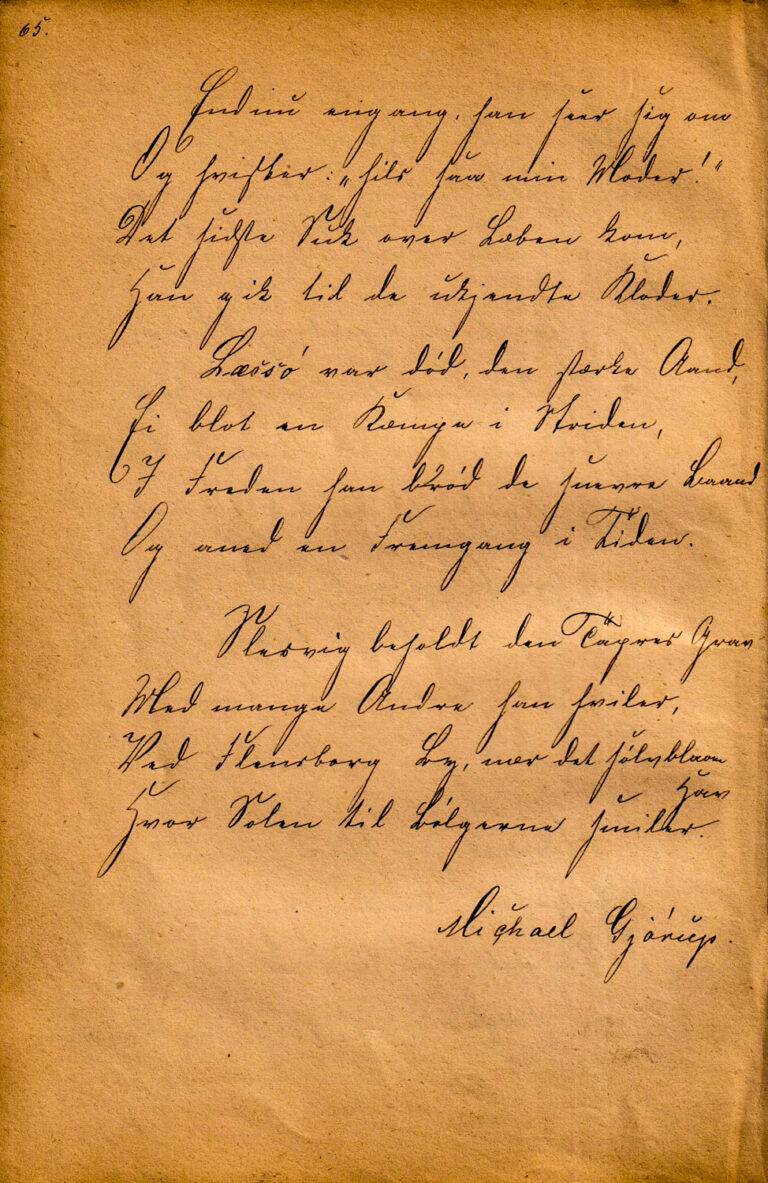 65.
Endnu engang, han seer sig om
Og hvisker: „hils saa min Moder!“
Det sidste Suk over Læben kom,
Han gik til de ukjendte Kloder.
Læssó var död, den stærke Aand,
Ei blot en Kæmpe i Striden,
I Freden han bröd de snevre Baand
Og aned en Fremgang i Tiden.
Slesvig beholdt den Tapres Grav
Med mange Andre han hviler,
Ved Flensborg By, nær det sølvblaae
Hav
Hvor Solen til Bølgerne smiler.
Michael Gjórup.